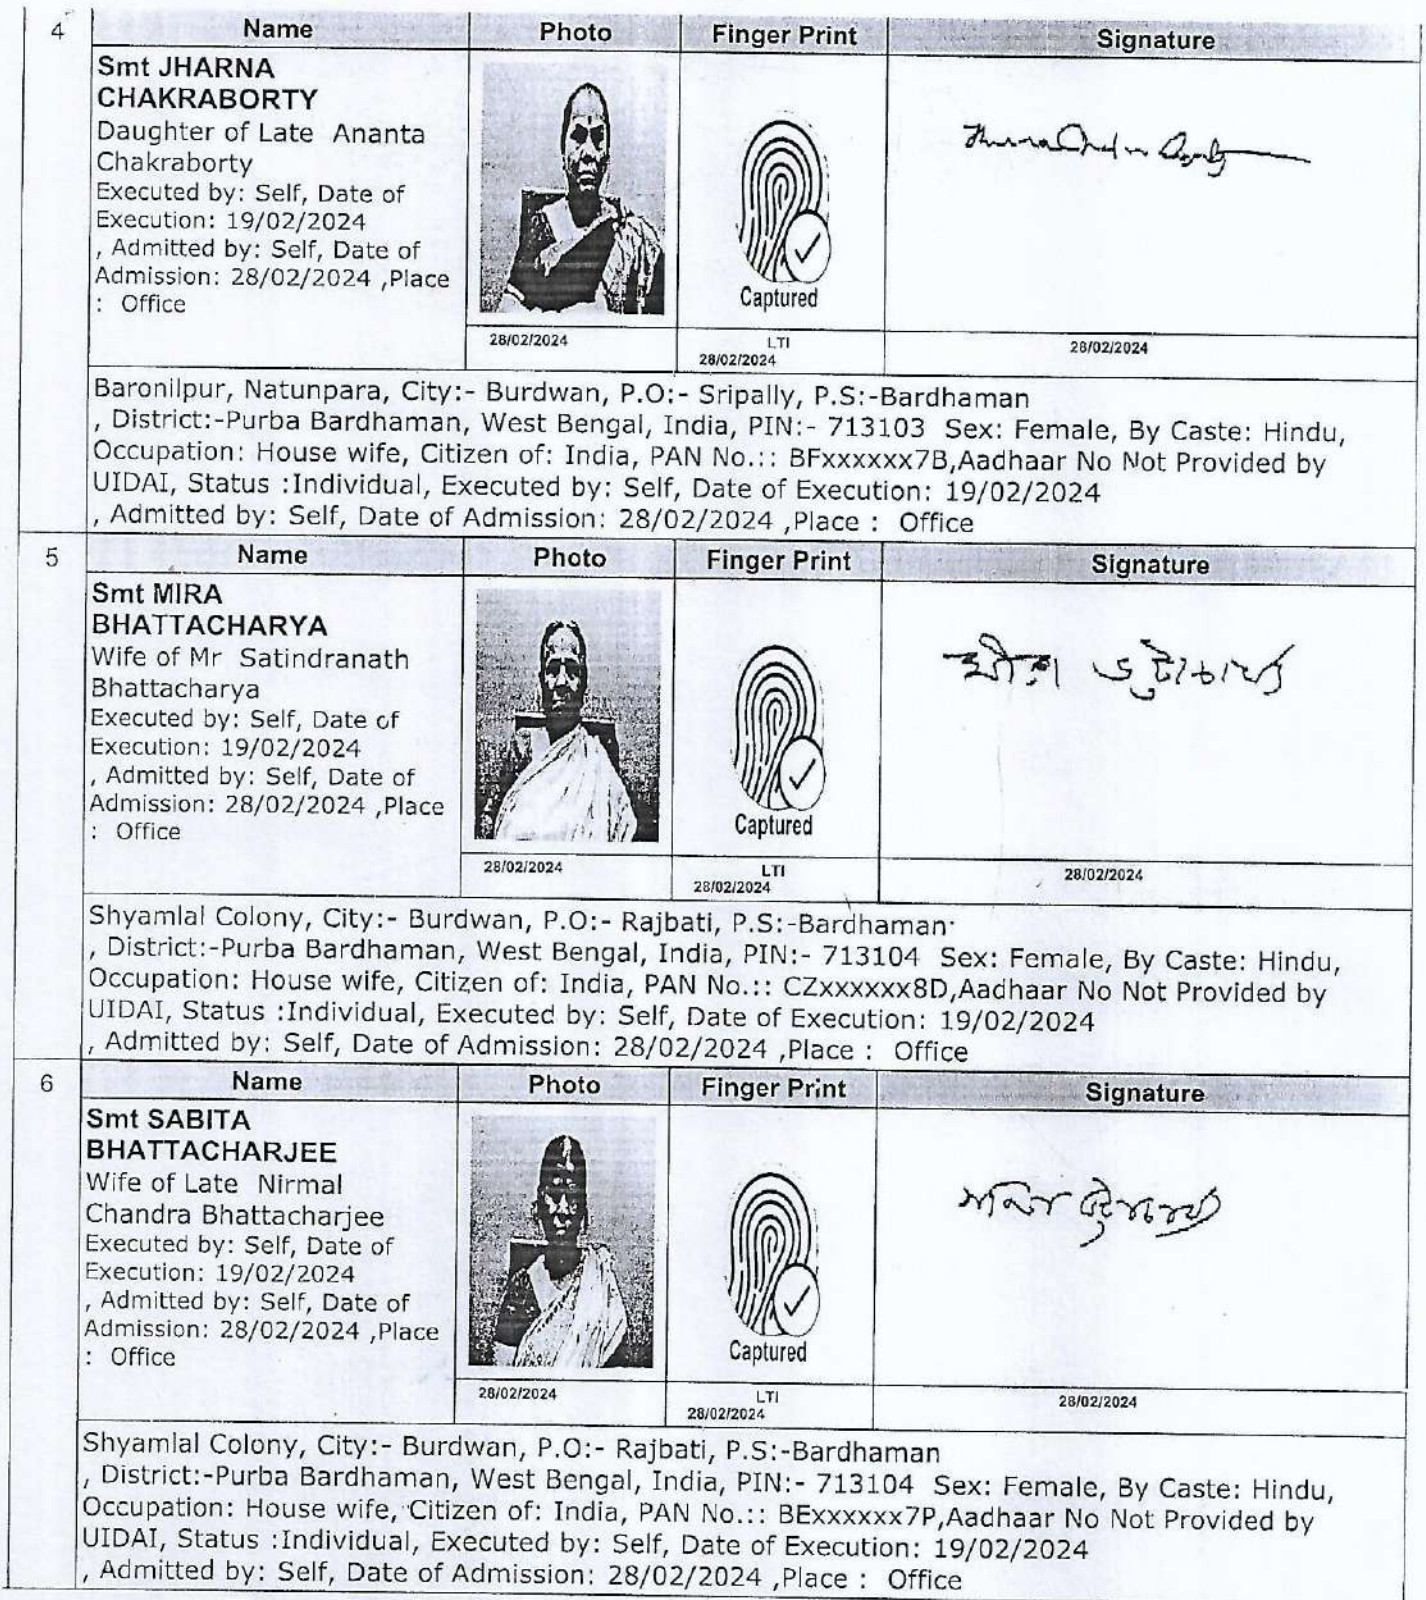 4
Name Photo Finger Print Signature
Smt JHARNA
CHAKRABORTY
Daughter of Late Ananta
Chakraborty
Executed by: Self, Date of
Execution: 19/02/2024
, Admitted by: Self, Date of
Admission: 28/02/2024 ,Place
: Office
Captured
28/02/2024
LTI
28/02/2024
28/02/2024
Baronilpur, Natunpara, City:- Burdwan, P.O:- Sripally, P.S:-Bardhaman
, District:-Purba Bardhaman, West Bengal, India, PIN:- 713103 Sex: Female, By Caste: Hindu,
Occupation: House wife, Citizen of: India, PAN No.:: BFxxxxxx7B,Aadhaar No Not Provided by
UIDAI, Status :Individual, Executed by: Self, Date of Execution: 19/02/2024
, Admitted by: Self, Date of Admission: 28/02/2024 ,Place : Office
5
Name Photo Finger Print Signature
Smt MIRA
BHATTACHARYA
Wife of Mr Satindranath
Bhattacharya
Executed by: Self, Date of
Execution: 19/02/2024
, Admitted by: Self, Date of
Admission: 28/02/2024 ,Place
: Office
Captured
মীরা ভট্টাচার্য্য
28/02/2024
LTI
28/02/2024
28/02/2024
Shyamlal Colony, City:- Burdwan, P.O:- Rajbati, P.S:-Bardhaman
, District:-Purba Bardhaman, West Bengal, India, PIN:- 713104 Sex: Female, By Caste: Hindu,
Occupation: House wife, Citizen of: India, PAN No.:: CZxxxxxx8D,Aadhaar No Not Provided by
UIDAI, Status :Individual, Executed by: Self, Date of Execution: 19/02/2024
, Admitted by: Self, Date of Admission: 28/02/2024 ,Place : Office
6
Name Photo Finger Print Signature
Smt SABITA
BHATTACHARJEE
Wife of Late Nirmal
Chandra Bhattacharjee
Executed by: Self, Date of
Execution: 19/02/2024
, Admitted by: Self, Date of
Admission: 28/02/2024 ,Place
: Office
Captured
28/02/2024
LTI
28/02/2024
28/02/2024
Shyamlal Colony, City:- Burdwan, P.O:- Rajbati, P.S:-Bardhaman
, District:-Purba Bardhaman, West Bengal, India, PIN:- 713104 Sex: Female, By Caste: Hindu,
Occupation: House wife, Citizen of: India, PAN No.:: BExxxxxx7P,Aadhaar No Not Provided by
UIDAI, Status :Individual, Executed by: Self, Date of Execution: 19/02/2024
, Admitted by: Self, Date of Admission: 28/02/2024 ,Place : Office